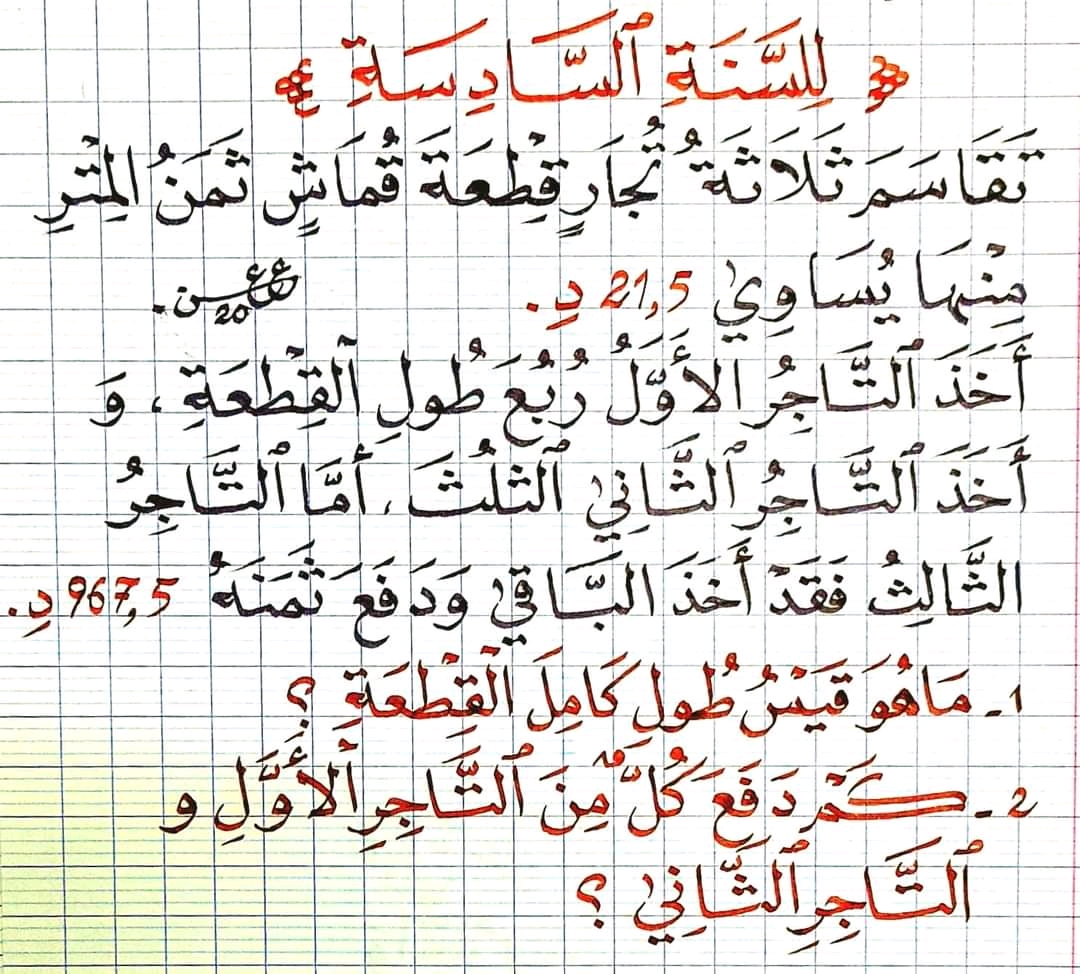 ﴿ لِلسَّنَةِ ٱلسَّادِسَةِ ﴾
تَقَاسَمَ ثَلَاثَةُ تُجَارٍ قِطْعَةَ قُمَاشٍ ثَمَنُ المِتْرِ
مِنْهَا يُسَاوِي 21,5 دِ.
أَخَذَ ٱلتَّاجِرُ الأَوَّلُ رُبُعَ طُولِ ٱلْقِطْعَةِ ، وَ
أَخَذَ ٱلتَّاجِرُ ٱلثَّانِي ٱلثلُثَ ، أَمَّا ٱلتَّاجِرُ
الثَّالِثُ فَقَدْ أَخَذَ البَّاقِي وَدَفَعَ ثَمَنَهُ 967,5 دِ.
1 - مَاهُوَ قَيْسُ طُول كَامِلَ القِطْعَةِ ؟
2 - كَمْ دَفَعَ كُلٌّ مِنَ ٱلتَّاجِرِ ٱلأَوَّلِ و
ٱلتَّاجِرِ ٱلثَّانِي ؟